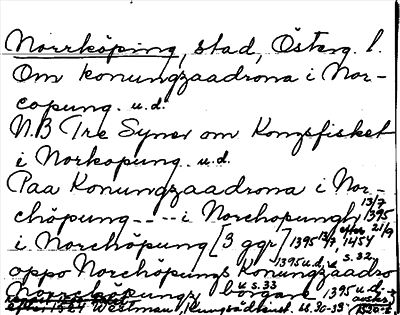 Norrköping, stad, Österg. l.
Om konungzaadrona i Nor-
copung. u.d.
N.B Tre Syner om Kongsfisket
i Norkopung. u.d.
Paa Konungzaadrona i Nor-
chöpung - - - - i Norchopungh 13/7 1395
i Norchöpung [3 ggr] 1395 13/7 efter 21/9 1454
oppo Norchöpungs Konungzaadro
1395 u.d. u s. 32.
Norrcköpungz borgare 1395 u.d.
u s. 33
efter 1521 Westman, Kungsådrans. u. 30-33